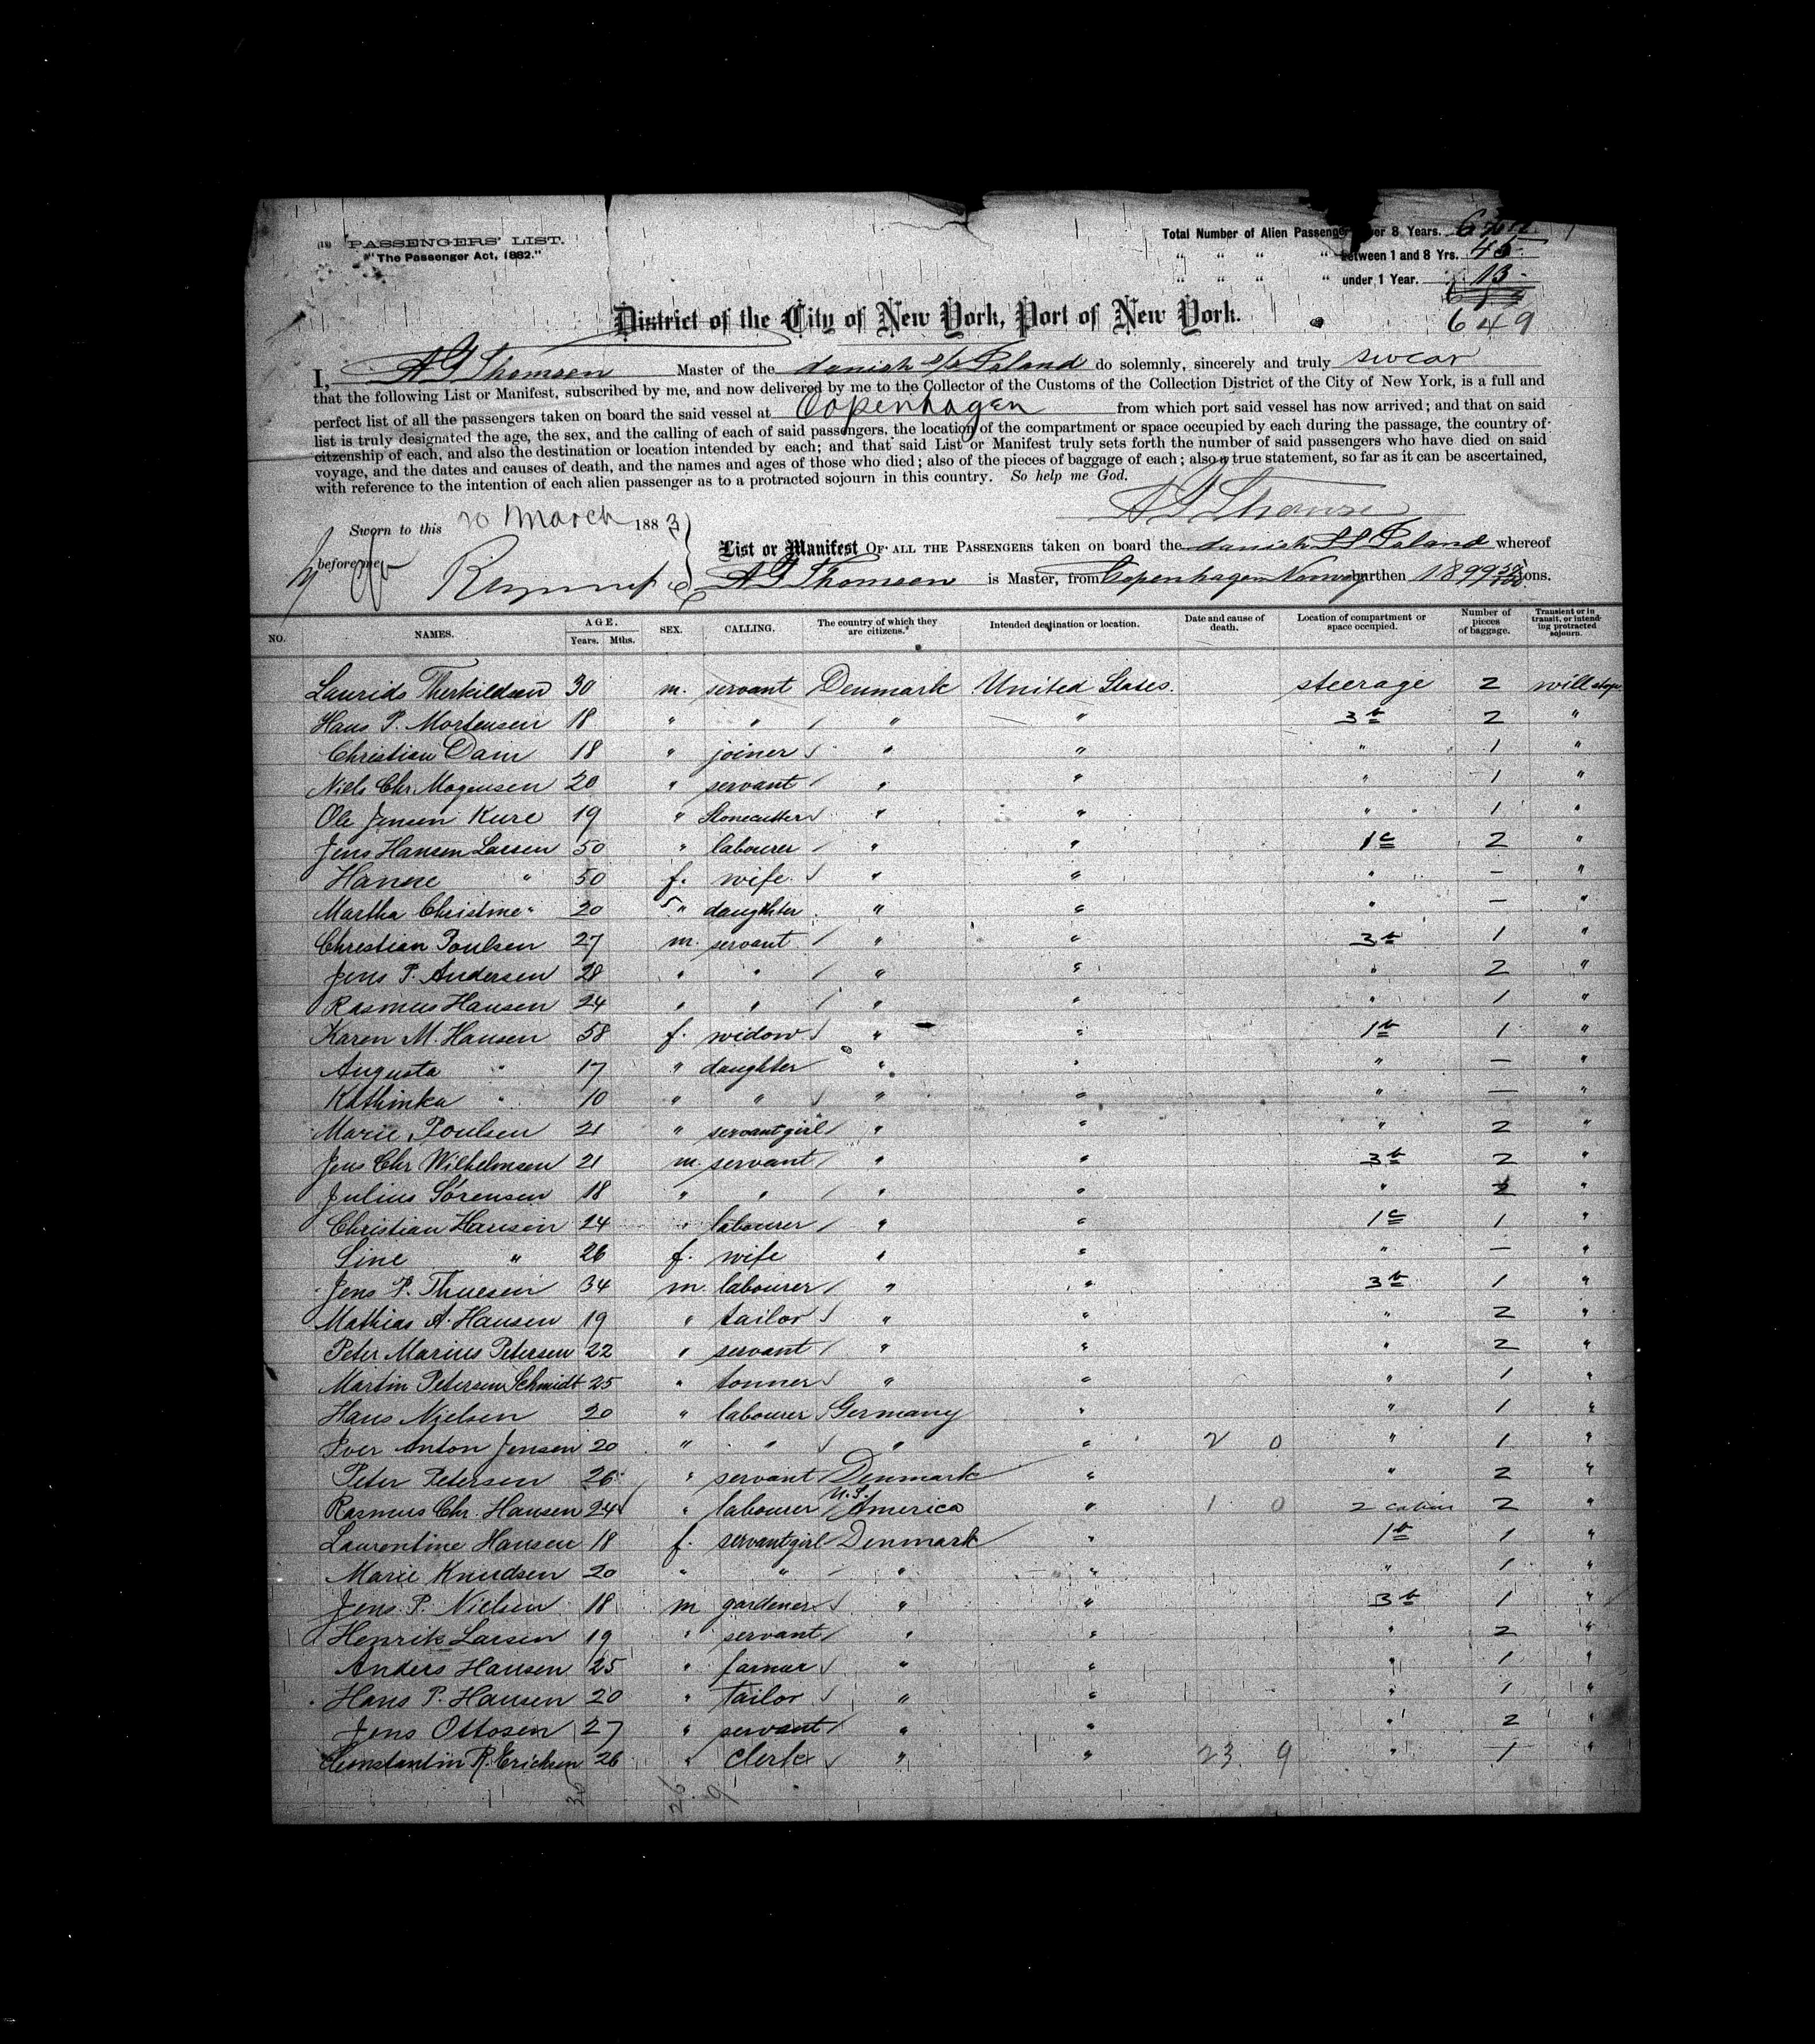 (18) PASSENGERS' LIST.
"The Passenger Act, 1882."
Total Number of Alien Passengers over 8 Years.
" " " " between 1 and 8 Yrs. 45
" " " " under 1 Year. 13
649
District of the City of New York, Port of New York.
I, A G Thomsen Master of the danish s/s Island do solemnly, sincerely and truly swear
that the following List or Manifest, subscribed by me, and now delivered by me to the Collector of the Customs of the Collection District of the City of New York, is a full and
perfect list of all the passengers taken on board the said vessel at Copenhagen from which port said vessel has now arrived; and that on said
list is truly designated the age, the sex, and the calling of each of said passengers, the location of the compartment or space occupied by each during the passage, the country of
citzenship of each, and also the destination or location intended by each; and that said List or Manifest truly sets forth the number of said passengers who have died on said
voyage, and the dates and causes of death, and the names and ages of those who died; also of the pieces of baggage of each; also a true statement, so far as it can be ascertained,
with reference to the intention of each alien passenger as to a protracted sojourn in this country. So help me God.
A G Thomsen
Sworn to this 20 March 1883
before me
List or Manifest OF ALL THE PASSENGERS taken on board the danish SS Island whereof
A G Thomsen is Master, from Copenhagen Norway burthen 1899 tons.
NO. NAMES. AGE. Years. Mths. SEX. CALLING. The country of which they are citizens. Intended destination or location. Date and cause of death. Location of compartment or space occupied. Number of pieces of baggage. Transient or in transit, or intending protracted sojourn.
Laurids Therkildsen 30 m. servant Denmark United States. steerage 2 will stop
Hans P. Mortensen 18 " " " " 3b 2 "
Christian Dam 18 " joiner " " " 1 "
Niels Chr. Mogensen 20 " servant " " " 1 "
Ole Jensen Kure 19 " Stonecutter " " " 1 "
Jens Hansen Larsen 50 " labourer " " 1c 2 "
Hanne " 50 f. wife " " " — "
Martha Christine " 20 " daughter " " " — "
Christian Poulsen 27 m. servant " " 3b 1 "
Jens P. Andersen 28 " " " " " 2 "
Rasmus Hansen 24 " " " " " 1 "
Karen M. Hansen 58 f. widow " " 1b 1 "
Augusta " 17 " daughter " " " — "
Kathinka " 10 " " " " " — "
Marie Poulsen 21 " servantgirl " " " 2 "
Jens Chr Wilhelmsen 21 m. servant " " 3b 2 "
Julius Sörensen 18 " " " " " 2 "
Christian Hansen 24 " labourer " " 1c 1 "
Sine " 26 f. wife " " " — "
Jens P. Thuesen 34 m. labourer " " 3b 1 "
Mathias A. Hansen 19 " tailor " " " 2 "
Peter Marius Petersen 22 " servant " " " 2 "
Martin Petersen Schmidt 25 " tonner " " " 1 "
Hans Nielsen 20 " labourer Germany " " 1 "
Iver Anton Jensen 20 " " " " 2 0 " 1 "
Peter Petersen 26 " servant Denmark " " 2 "
Rasmus Chr. Hansen 24 " labourer U.S. America " 1 0 2 cabin 2 "
Laurentine Hansen 18 f. servantgirl Denmark " 1b 1 "
Marie Knudsen 20 " " " " " 1 "
Jens P. Nielsen 18 m gardener " " 3b 1 "
Henrik Larsen 19 " servant " " " 2 "
Anders Hansen 25 " farmer " " " 1 "
Hans P. Hansen 20 " Tailor " " " 1 "
Jens Ottosen 27 " servant " " " 2 "
Constantin R. Ericksen 26 " clerk " " 23 9 " 1 "
26 9